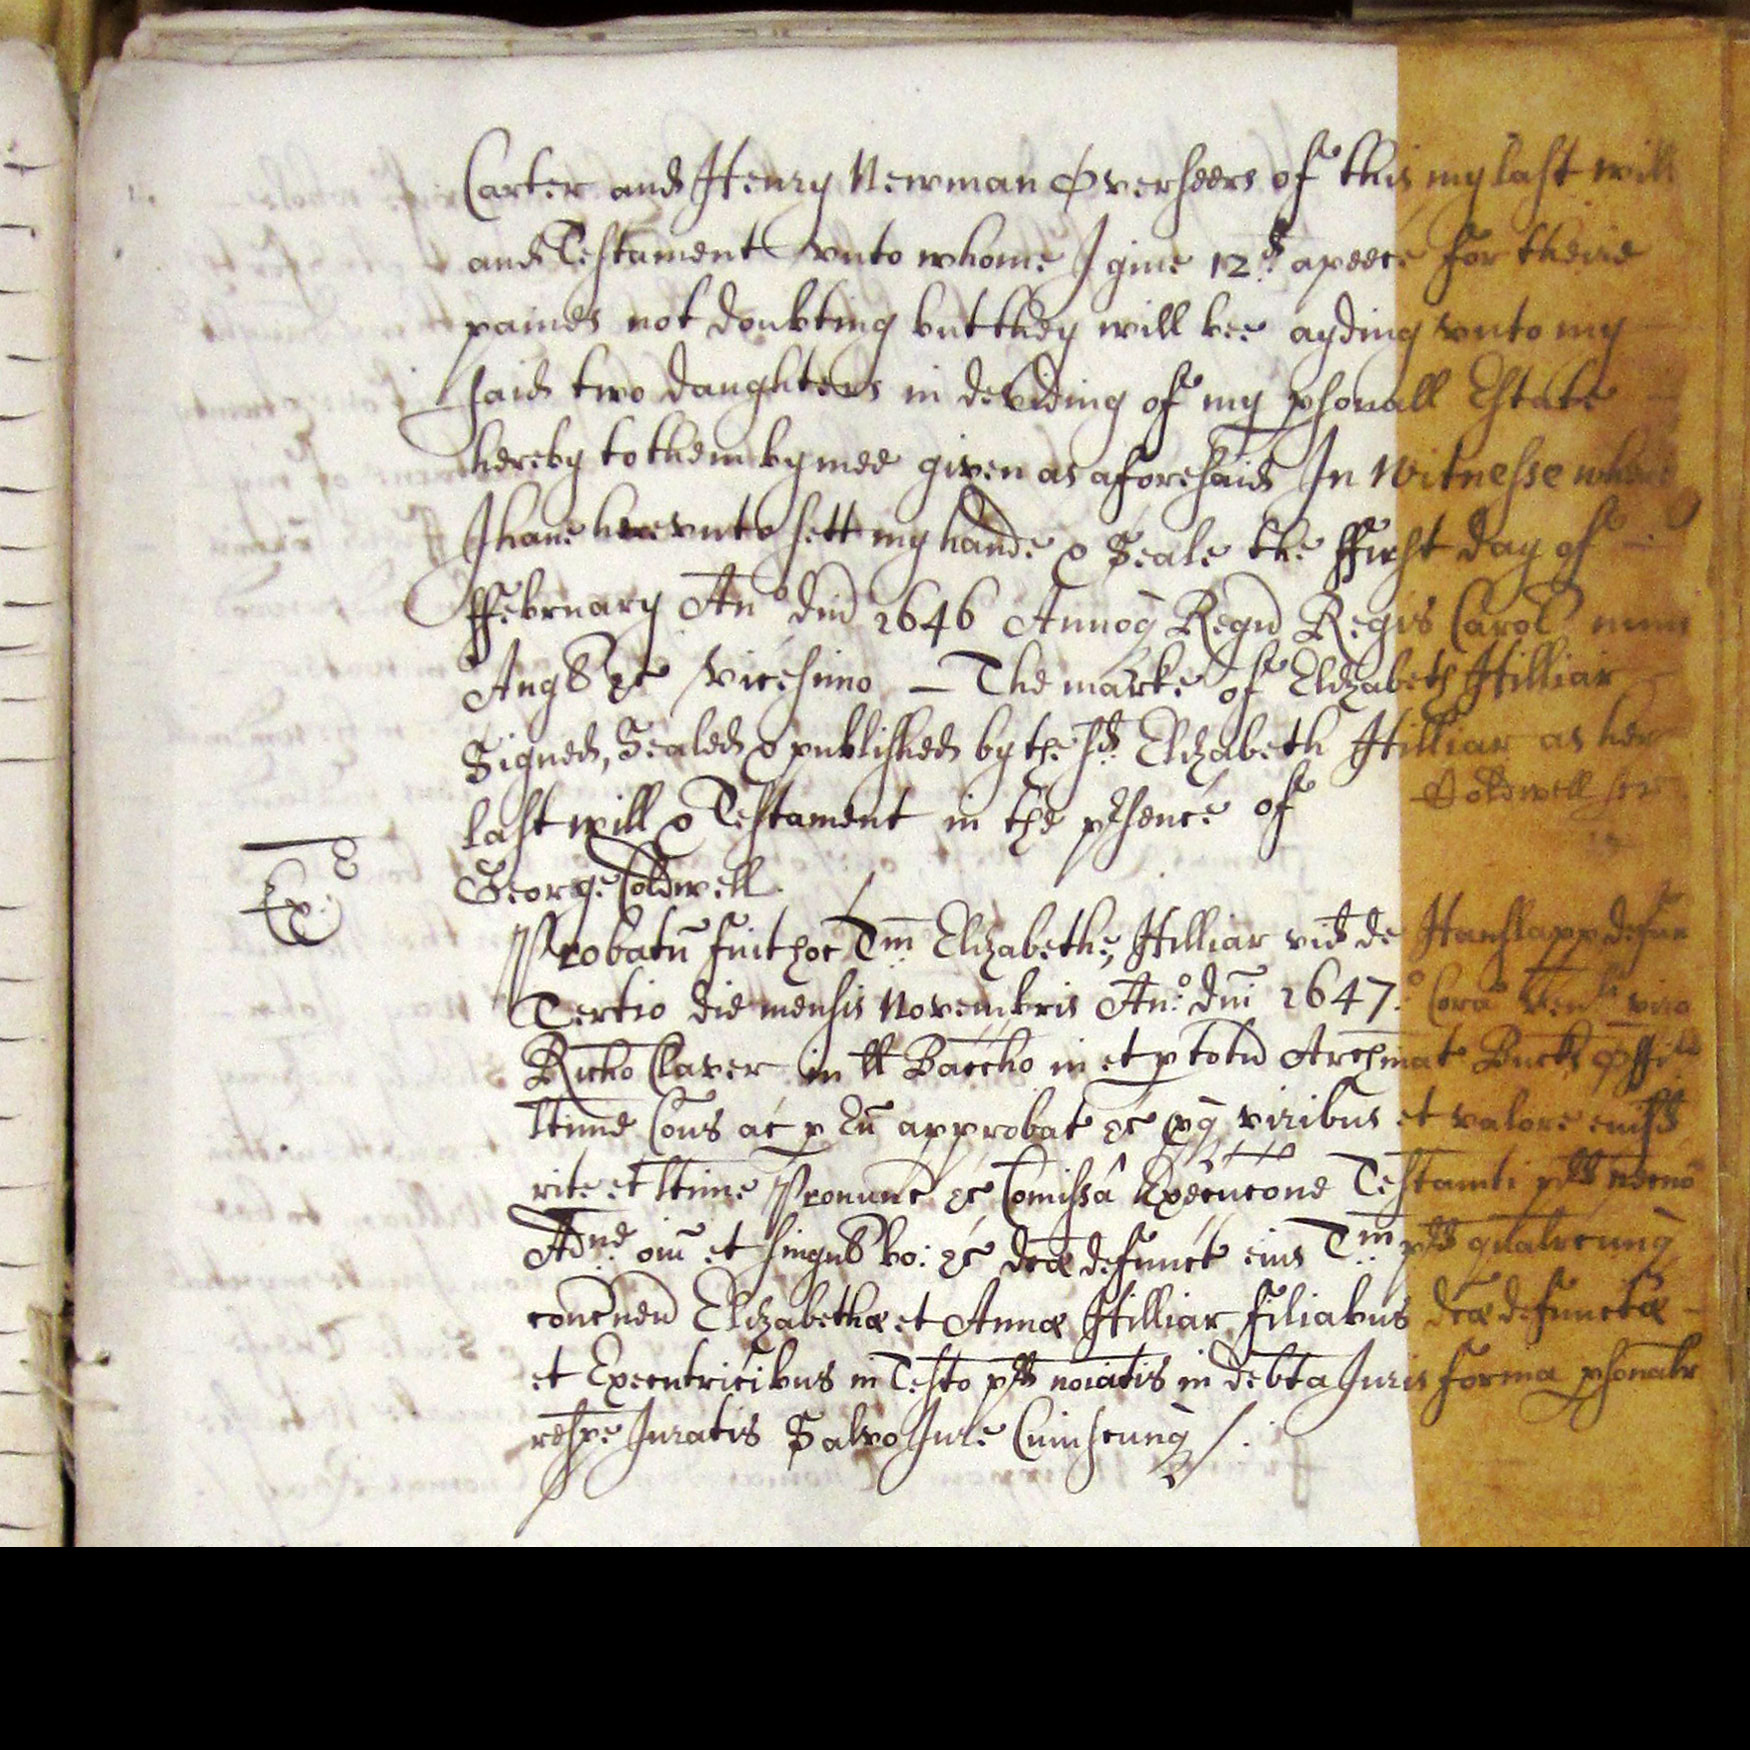 Carter and Henry Newman Overseers of this my last will
and Testament vnto whome I giue 12d. apeece for theire
paines not doubting but they will bee ayding vnto my
said two daughters in deviding of my psonall Estate
hereby to them by mee given as aforesaid In Witnesse
I haue herevnto sett my hande & Seale the ffirst day of
ffebruary Ano dni 1646 Annoq Regn Regis Carol nunc
Angl &c Vicesimo – The marke of Elizabeth Hilliar
Signed, Sealed & published by the sd. Elizabeth Hilliar as her
last will & Testament in the psence of
Coldwell scr
George Coldwell.
Ex:
Probatu fuit hoc Tm. Elizabethę Hilliar vid de Hanslapp defun
Tertio die mensis Novembris Ano. dni 1647.o Cora Ven viro
Richo Claver in ll Baccho in et p totu Archinat Bucks Offi
ltime Cons ac p Eu approbat &c pq viribus et valore eiusd
rite et ltime Pronunc &c Comissa Execucone Testamti pd necno
Adne. oiu et singul bo: &c dcæ defunct eius Tm. pd qualrcunq
concnen Elizabethæ et Annæ Hilliar filiabus dcæ defunctæ
et Executricibus in Testo pd noiatis in debta Juris forma psonalr
respe Juratis Salvo Jure Cuiuscunq /.